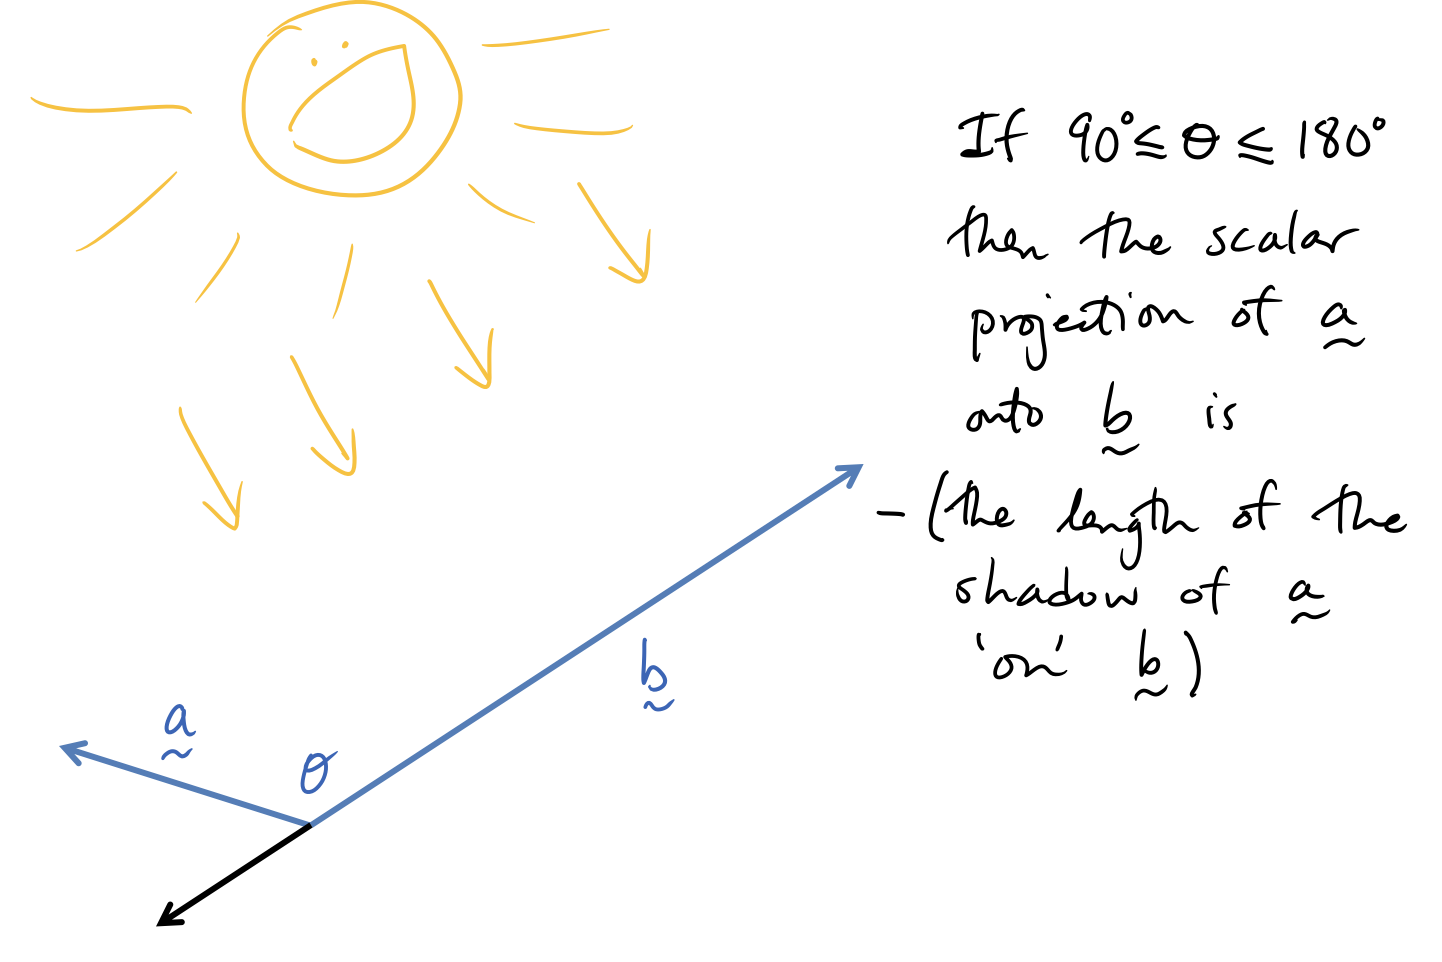 If 90° ≤ θ ≤ 180°
then the scalar
projection of a
onto b is
-(the length of the
shadow of a
'on' b)
b
a
θ